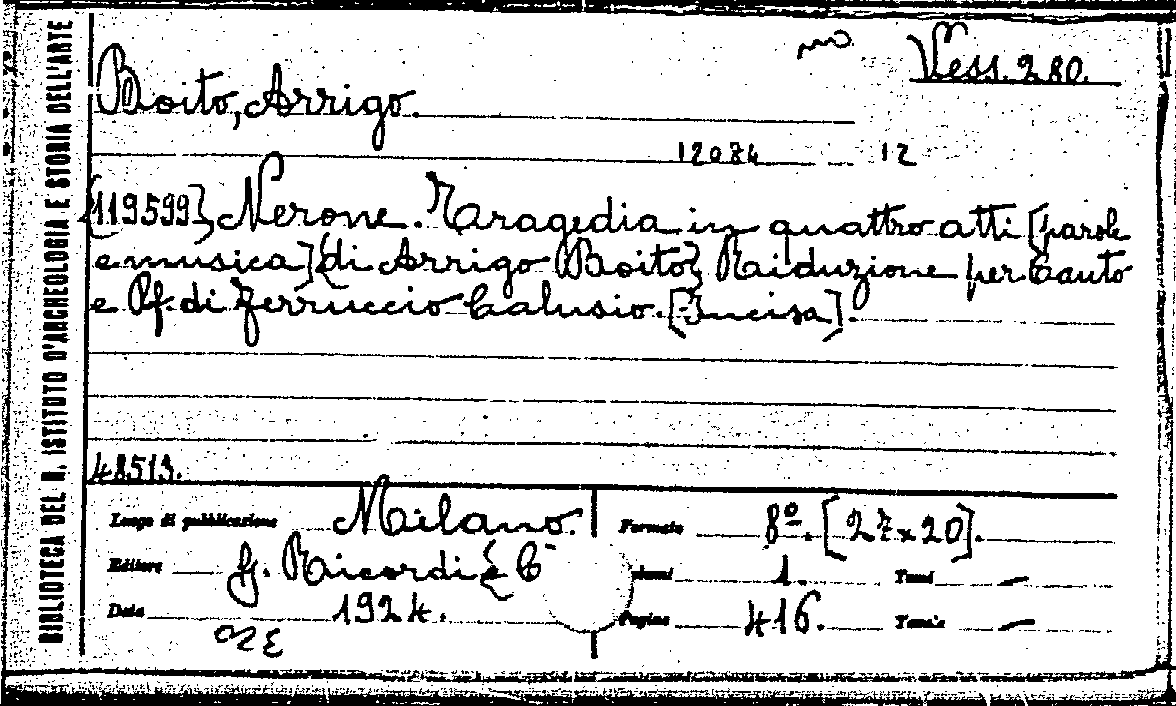 BIBLIOTECA DEL R. ISTITUTO D'ARCHEOLOGIA E STORIA DELL'ARTE
Vess. 280.
Boito, Arrigo.
12084 12
[119599] Nerone. Tragedia in quattro atti [parole
e musica] [di Arrigo Boito] Riduzione per Canto
e Pf. di Ferruccio Calusio. [Incisa].
48513.
Luogo di pubblicazione Milano. Formato 8º. [27x20].
Editore G. Ricordi e C 1. Tomi —
Data 1924. Pagine 416. Tavole —